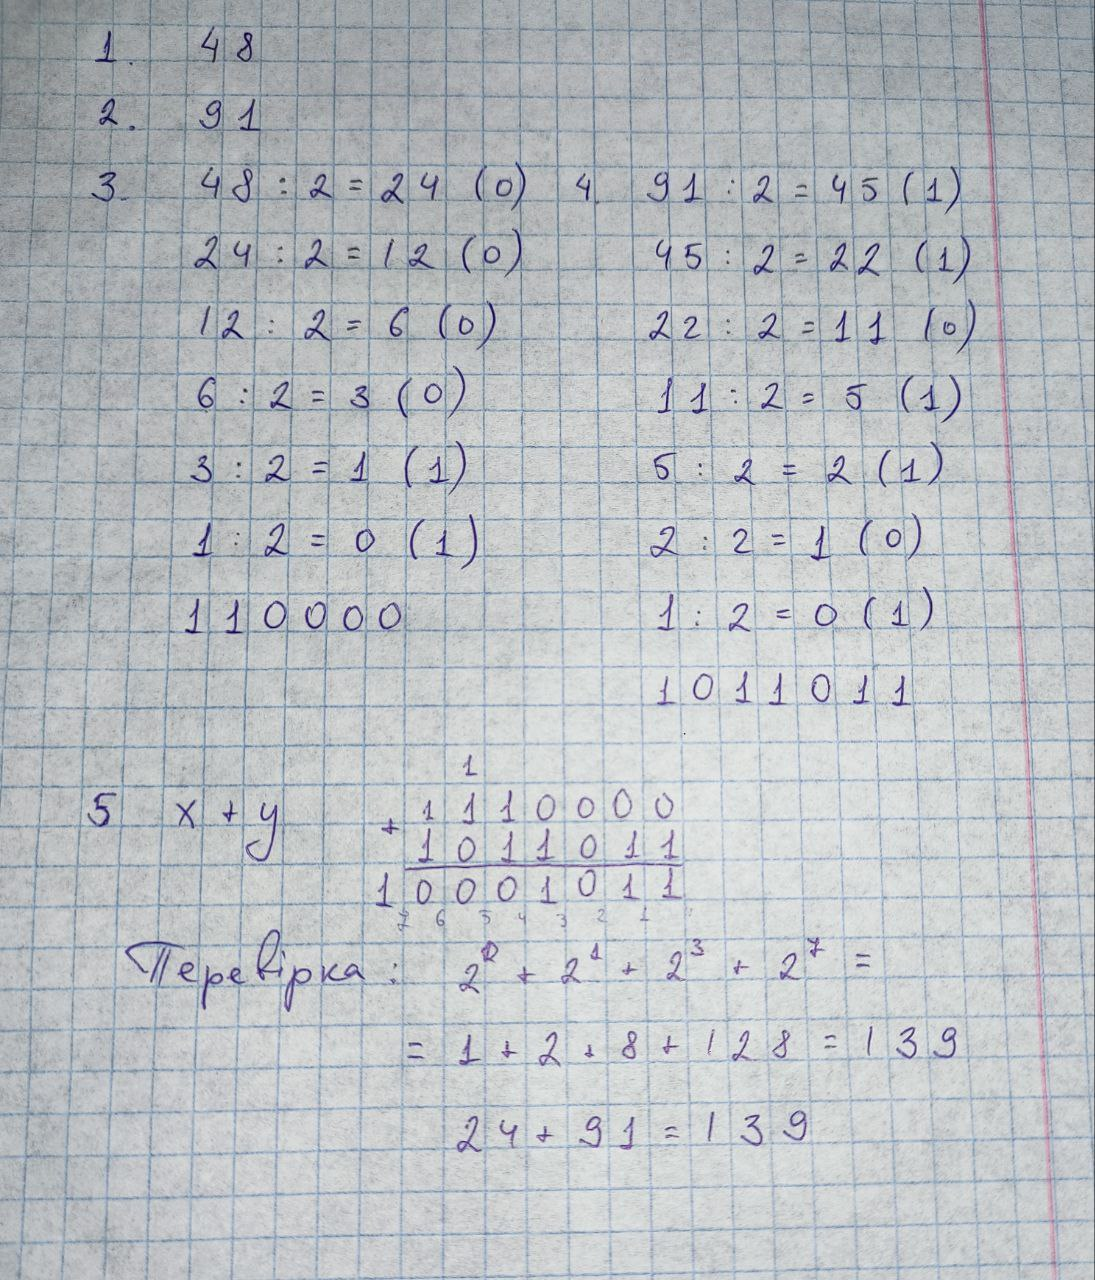 1. 48
2. 91
3. 48 : 2 = 24 (0)
24 : 2 = 12 (0)
12 : 2 = 6 (0)
6 : 2 = 3 (0)
3 : 2 = 1 (1)
1 : 2 = 0 (1)
110000
4. 91 : 2 = 45 (1)
45 : 2 = 22 (1)
22 : 2 = 11 (0)
11 : 2 = 5 (1)
5 : 2 = 2 (1)
2 : 2 = 1 (0)
1 : 2 = 0 (1)
1011011
1
5 x + y + 1110000
1011011
10001011
7 6 5 4 3 2 1
Перевірка: 2⁰ + 2¹ + 2³ + 2⁷ =
= 1 + 2 + 8 + 128 = 139
24 + 91 = 139